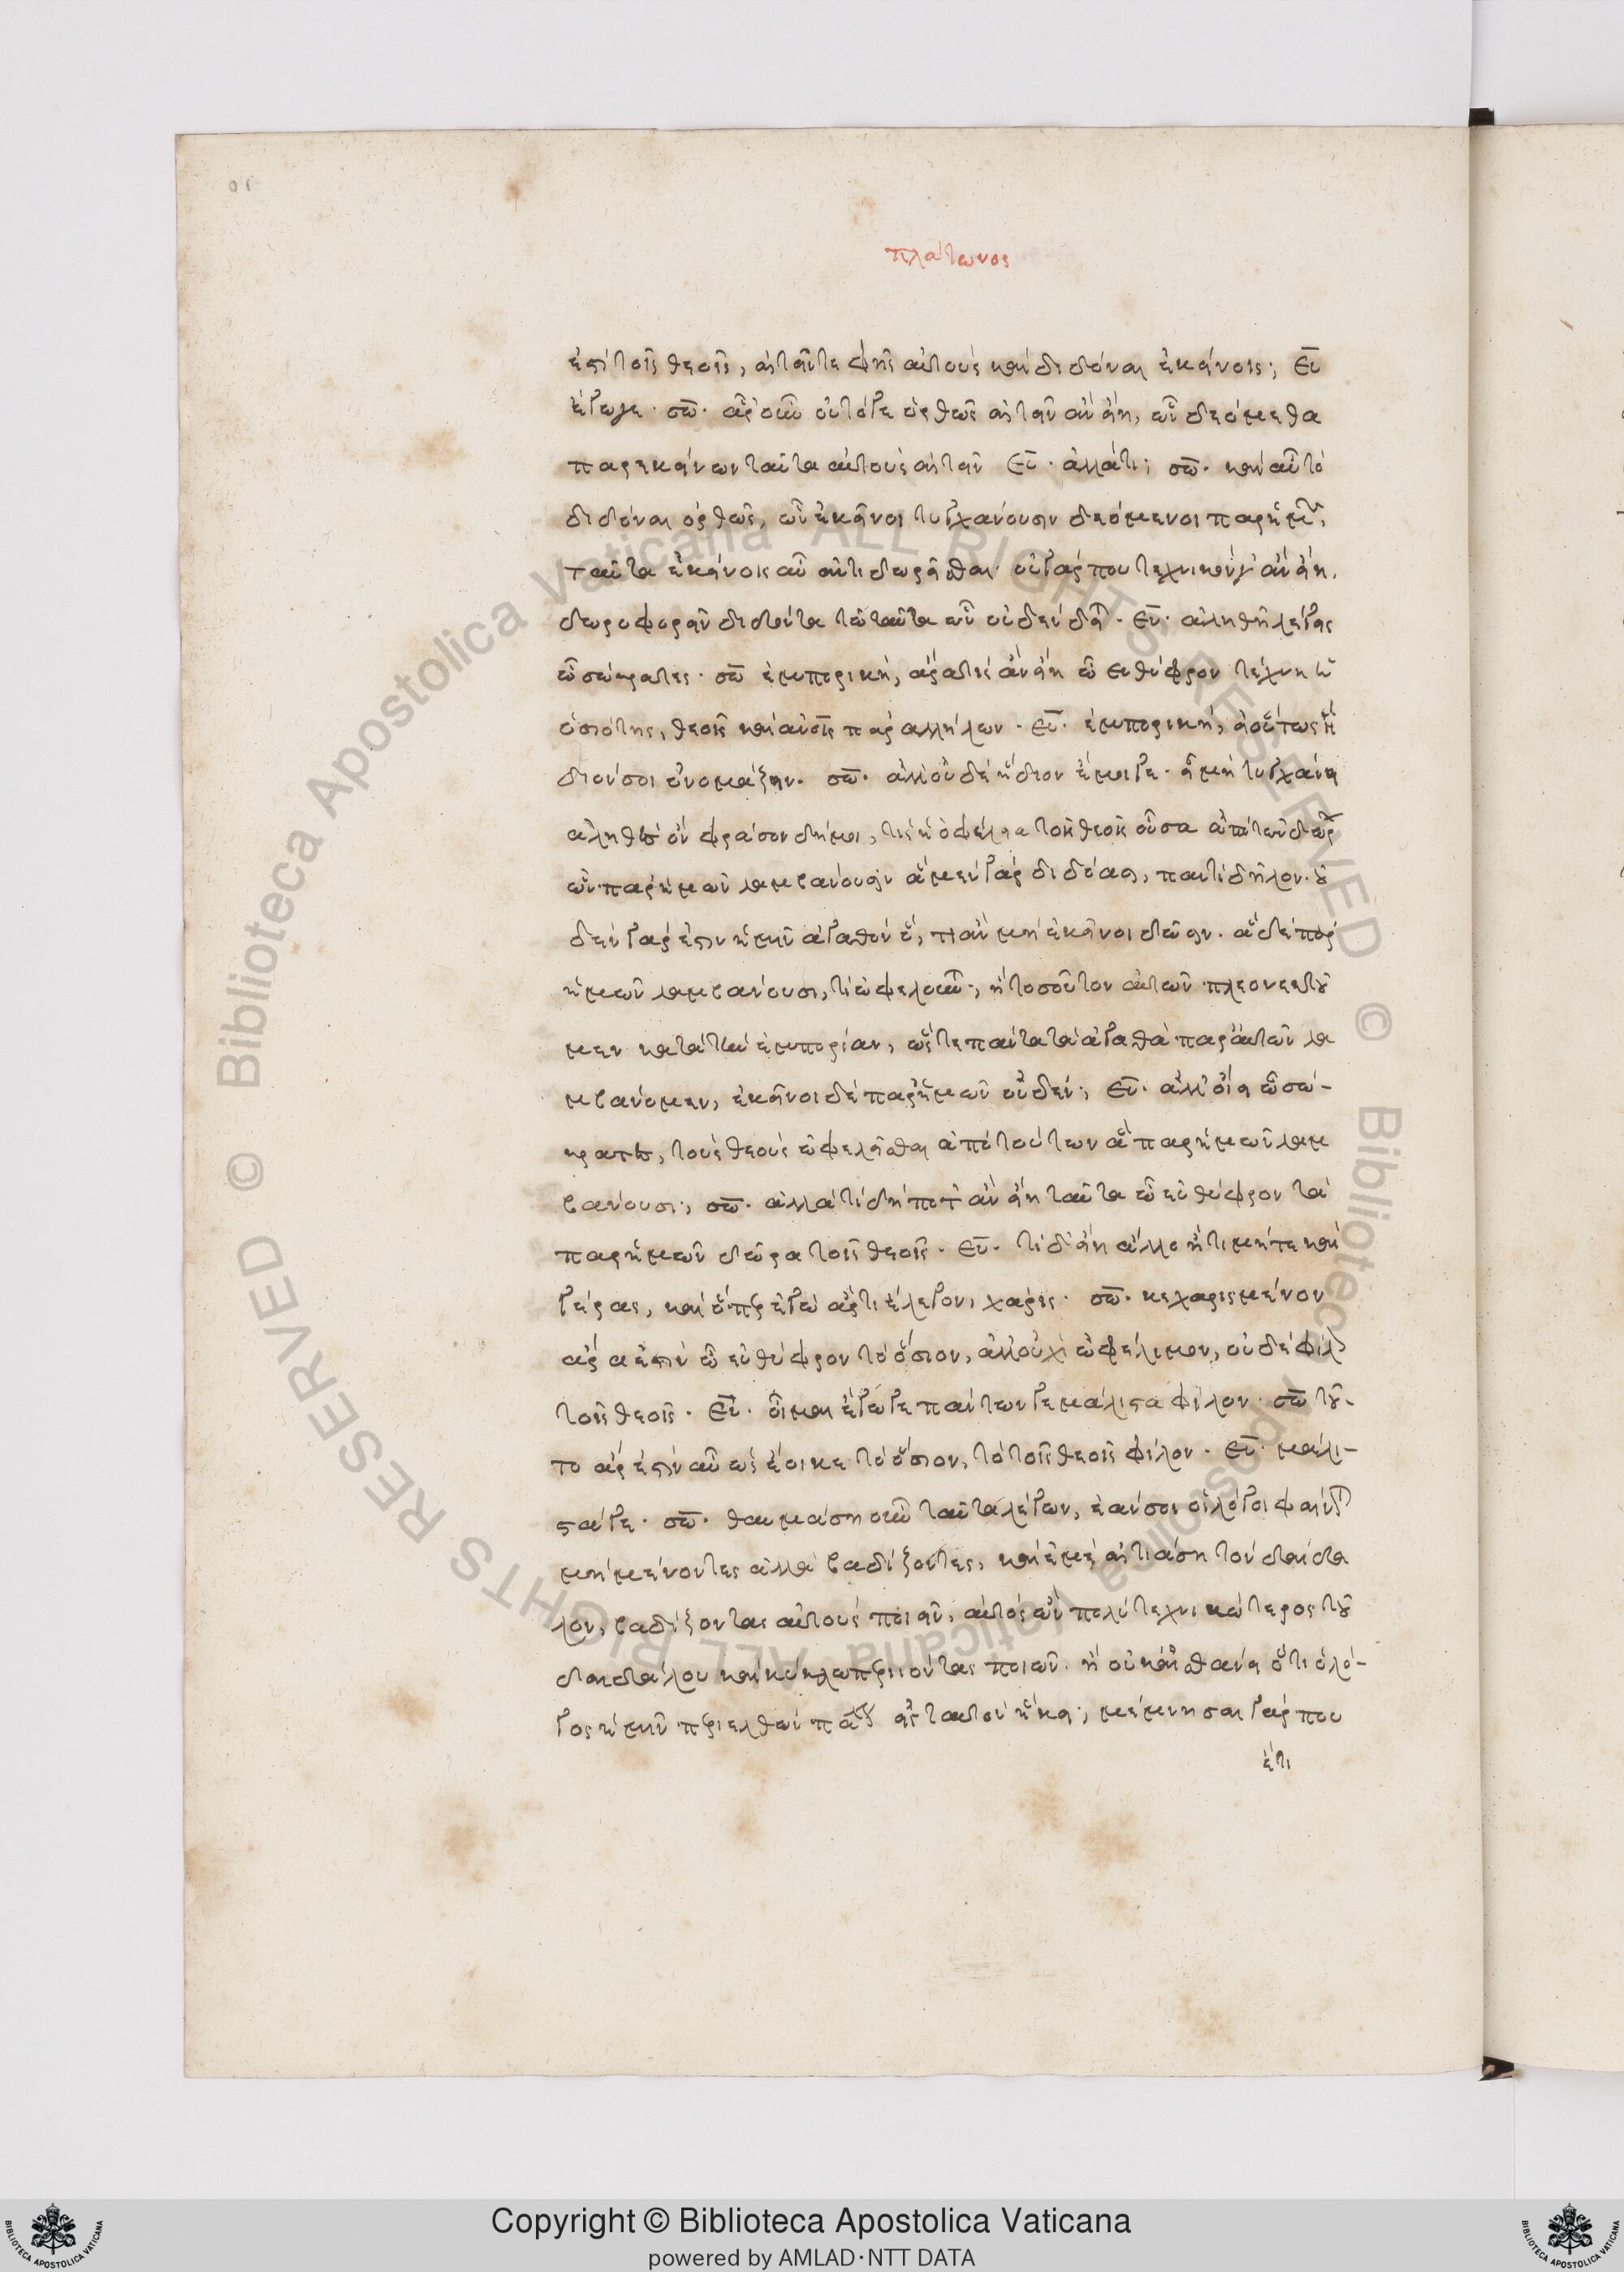 πλάτωνος
ἐπὶ τοῖς θεοῖς, αἰτεῖν τε φῂς αὐτοὺς καὶ διδόναι ἐκείνοις; ευ
ἔγωγε · σω · ἆρ' οὖν οὐ τό γε ὀρθῶς αἰτεῖν ἂν εἴη, ὧν δεόμεθα
παρ' ἐκείνων ταῦτα αὐτοὺς αἰτεῖν ευ · ἀλλὰ τί; σω · καὶ αὖ τὸ
διδόναι ὀρθῶς, ὧν ἐκεῖνοι τυγχάνουσιν δεόμενοι παρ' ἡμῶν,
ταῦτα ἐκείνοις αὖ ἀντιδωρεῖσθαι · οὐ γάρ που τεχνικόν γ' ἂν εἴη,
δωροφορεῖν διδόντα τῳ ταῦτα ὧν οὐδὲν δεῖ · ευ · ἀληθῆ λέγεις
ὦ σώκρατες · σω ἐμπορικὴ, ἄρα τις ἂν εἴη ὦ ευθύφρον τέχνη ἡ
ὁσιότης, θεοῖς καὶ ἀνοις παρ' ἀλλήλων · ευ · ἐμπορικὴ, εἰ οὕτως ἥ
διόν σοι ὀνομάζειν · σω · ἀλλ' οὐδὲν ἥδιον ἔμοιγε · εἰ μὴ τυγχάνει
ἀληθὲς ὂν φράσον δή μοι, τίς ἡ ὠφέλεια τοῖς θεοῖς οὖσα ἀπὸ τῶν δώρ
ὧν παρ' ἡμῶν λαμβάνουσιν ἃ μὲν γὰρ διδόασι, παντὶ δῆλον · οὐ
δὲν γάρ ἐστιν ἡμῖν ἀγαθὸν ὅ, τι ἂν μὴ ἐκεῖνοι δῶσιν · ἃ δὲ παρ'
ἡμῶν λαμβάνουσι, τί ὠφελοῦνται; ἢ τοσοῦτον αὐτῶν πλεονεκτοῦ
μεν κατὰ τὴν ἐμπορίαν, ὥστε πάντα τὰ ἀγαθὰ παρ' αὐτῶν λα
μβάνομεν, ἐκεῖνοι δὲ παρ' ἡμῶν οὐδέν; ευ · ἀλλ' οἴει ὦ σώ-
κρατες, τοὺς θεοὺς ὠφελεῖσθαι ἀπὸ τούτων ἃ παρ' ἡμῶν λαμ
βάνουσι; σω · ἀλλὰ τί δήποτ' ἂν εἴη ταῦτα ὦ εὐθύφρον τὰ
παρ' ἡμῶν δῶρα τοῖς θεοῖς · ευ · τί δ' εἴη ἄλλο ἢ τιμή τε καὶ
γέρας, καὶ ὅπερ ἐγὼ ἄρτι ἔλεγον, χάρις · σω · κεχαρισμένον
ἄρα ἐστὶν ὦ εὐθύφρον τὸ ὅσιον, ἀλλ' οὐχὶ ὠφέλιμον, οὐδὲ φίλον
τοῖς θεοῖς · ευ · οἶμαι ἔγωγε πάντων γε μάλιστα φίλον · σω τοῦ-
το ἄρ' ἐστὶν αὖ ὡς ἔοικε τὸ ὅσιον, τὸ τοῖς θεοῖς φίλον · ευ · μάλι-
στά γε · σω · θαυμάσῃ οὖν ταῦτα λέγων, ἐάν σοι οἱ λόγοι φαίνωνται
μὴ μένοντες ἀλλὰ βαδίζοντες, καὶ ἐμὲ αἰτιάσῃ τὸν δαίδα
λον, βαδίζοντας αὐτοὺς ποιεῖν, αὐτὸς ὢν πολὺ τεχνικώτερος τοῦ
δαιδάλου καὶ κύκλῳ περιιόντας ποιῶν · ἢ οὐκ αἰσθάνῃ ὅτι ὁ λό-
γος ἡμῖν περιελθὼν πάλιν εἰς ταυτὸν ἥκει; μέμνησαι γάρ που
ἔτι
Copyright © Biblioteca Apostolica Vaticana
powered by AMLAD·NTT DATA